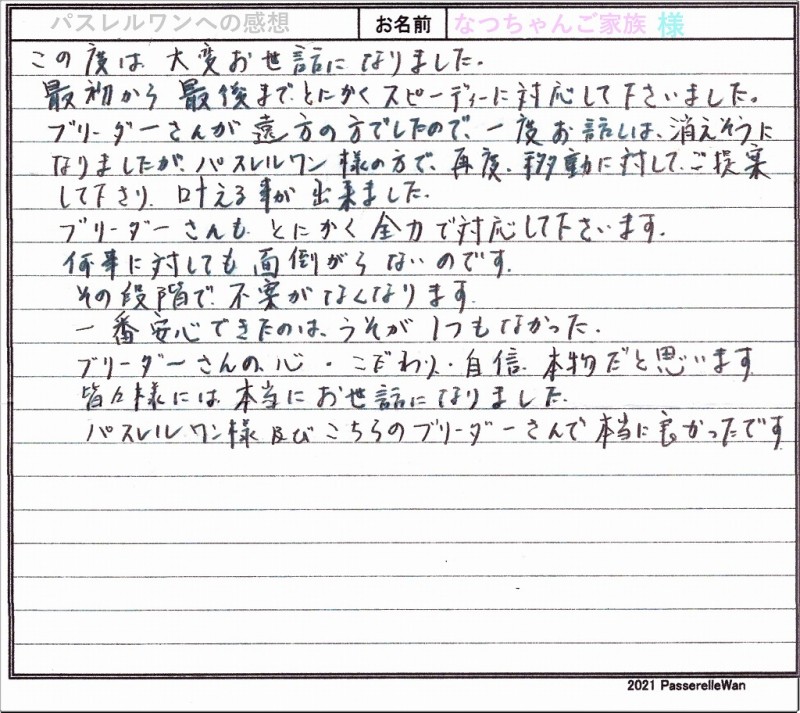 パスレルワンへの感想 お名前 なつちゃんご家族 様
この度は、大変お世話になりました。
最初から最後まで、とにかくスピーディーに対応して下さいました。
ブリーダーさんが遠方の方でしたので、一度お話しは、消えそうに
なりましたが、パスレルワン様の方で、再度、移動に対して、ご提案
して下さり、叶える事が出来ました。
ブリーダーさんも、とにかく全力で対応して下さいます。
何事に対しても面倒がらないのです。
その段階で、不安がなくなります。
一番安心できたのは、うそが1つもなかった。
ブリーダーさんの、心・こだわり・自信、本物だと思います
皆々様には、本当にお世話になりました。
パスレルワン様及びこちらのブリーダーさんで本当に良かったです
2021 PasserelleWan